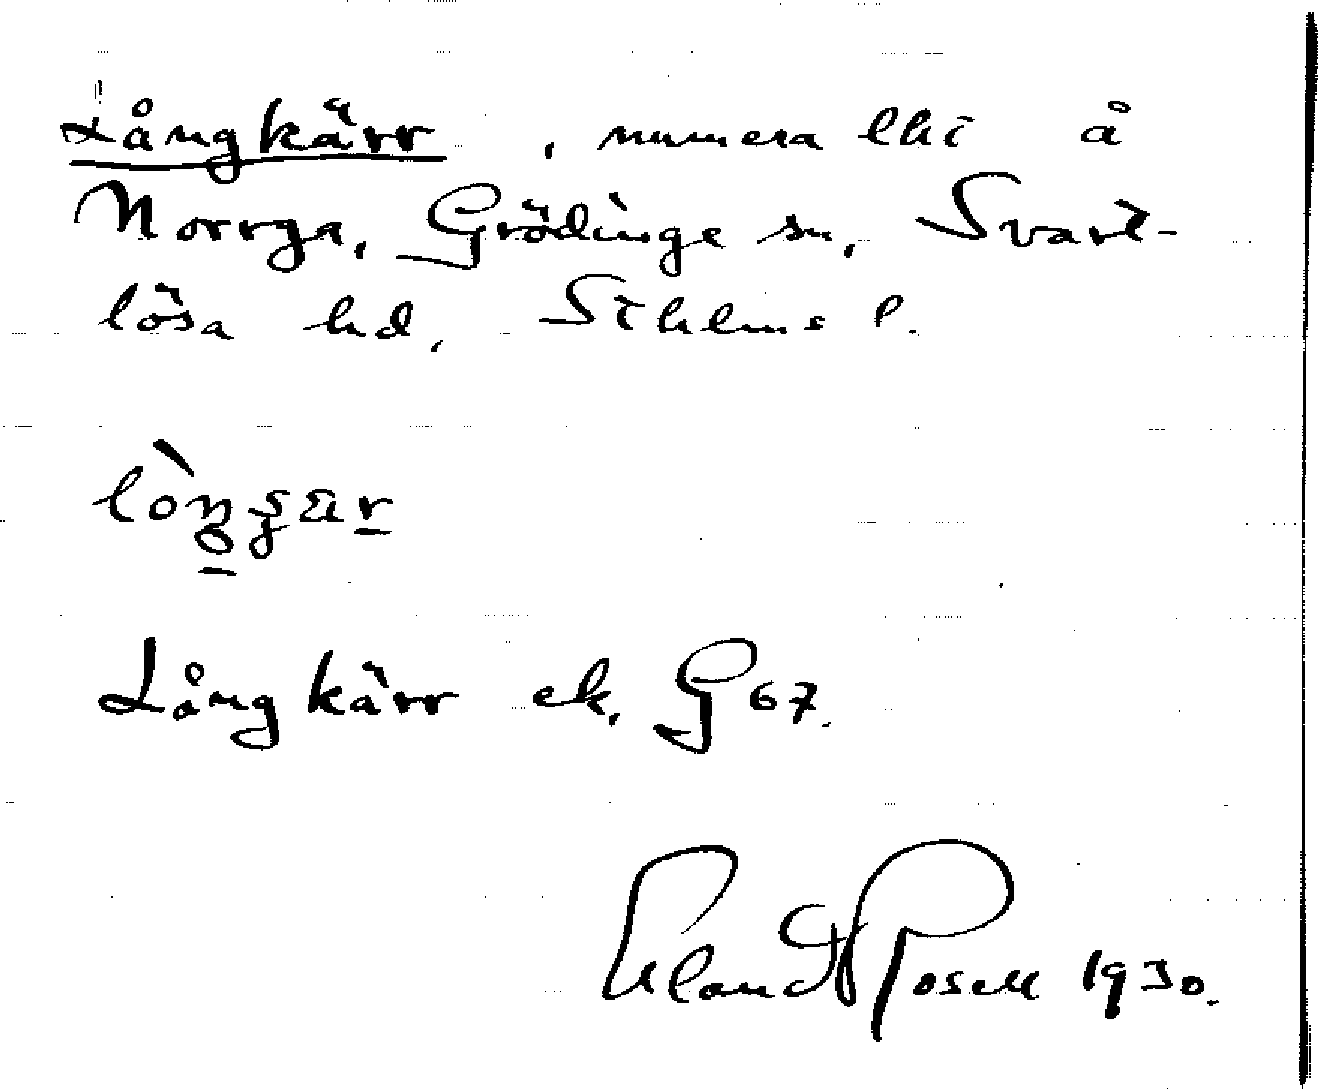 Långkärr, numera lht å
Norrga, Grödinge sn, Svart-
lösa hd, Sthlms l.
Långkärr ek. G 67.
Erland Rosell 1930.